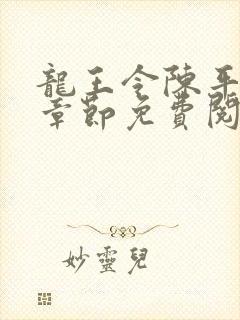 龍王令陳平
章節免費閱
妙靈兒